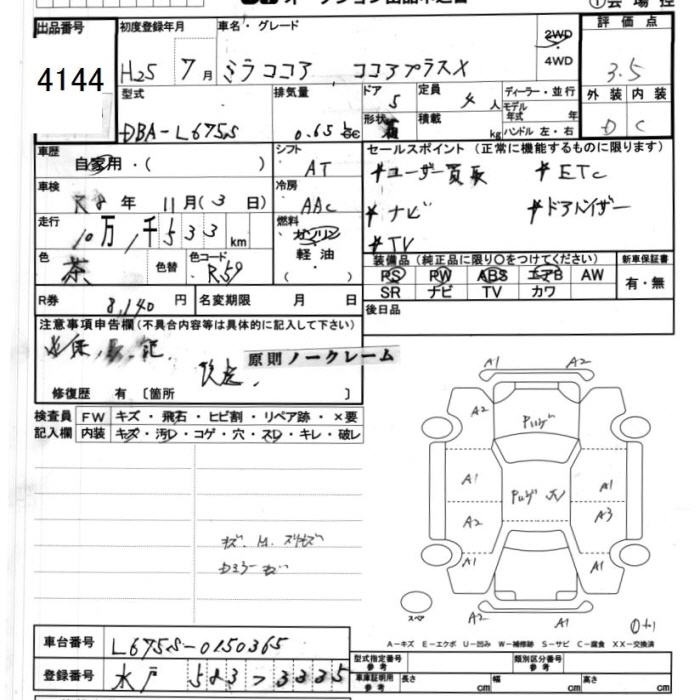 オークション出品申込書
①会場控
出品番号 4144
初度登録年月 H25 7月
車名・グレード ミラココア ココアプラスX
2WD
4WD
評価点 3.5
外装 D 内装 C
型式 DBA-L675S
排気量 0.65 cc
ドア 5
形状
定員 4人
積載 kg
ディーラー・並行
モデル年式 年式
ハンドル 左・右
車歴 自家用・( )
シフト AT
車検 R8年 11月(3日)
冷房 AAC
走行 10万,千533km
燃料 ガソリン
軽油
( )
色 茶 色替 色コード R59
R券 8,140円 名変期限 月 日
セールスポイント(正常に機能するものに限ります)
*ユーザー買取 *ETC
*ナビ *ドアバイザー
*TV
装備品(純正品に限り○をつけてください) 新車保証書
PS PW ABS エアB AW 有・無
SR ナビ TV カワ
後日品
注意事項申告欄(不具合内容等は具体的に記入して下さい)
原則ノークレーム
修復歴 有〔箇所 〕
検査員 FW キズ・飛石・ヒビ割・リペア跡・×要
記入欄 内装 キズ・汚D・コゲ・穴・スレ・キレ・破レ
A1 A2
A2
A1 A1
A2 A3
A1 A1
A2 A1
スペア
A-キズ E-エクボ U-凹み W-補修跡 S-サビ C-腐食 XX-交換済
車台番号 L675S-0150365
登録番号 水戸 583 フ 3335
型式指定番号 参考 類別区分番号 参考
車庫証明用 参考 長さ cm 幅 cm 高さ cm